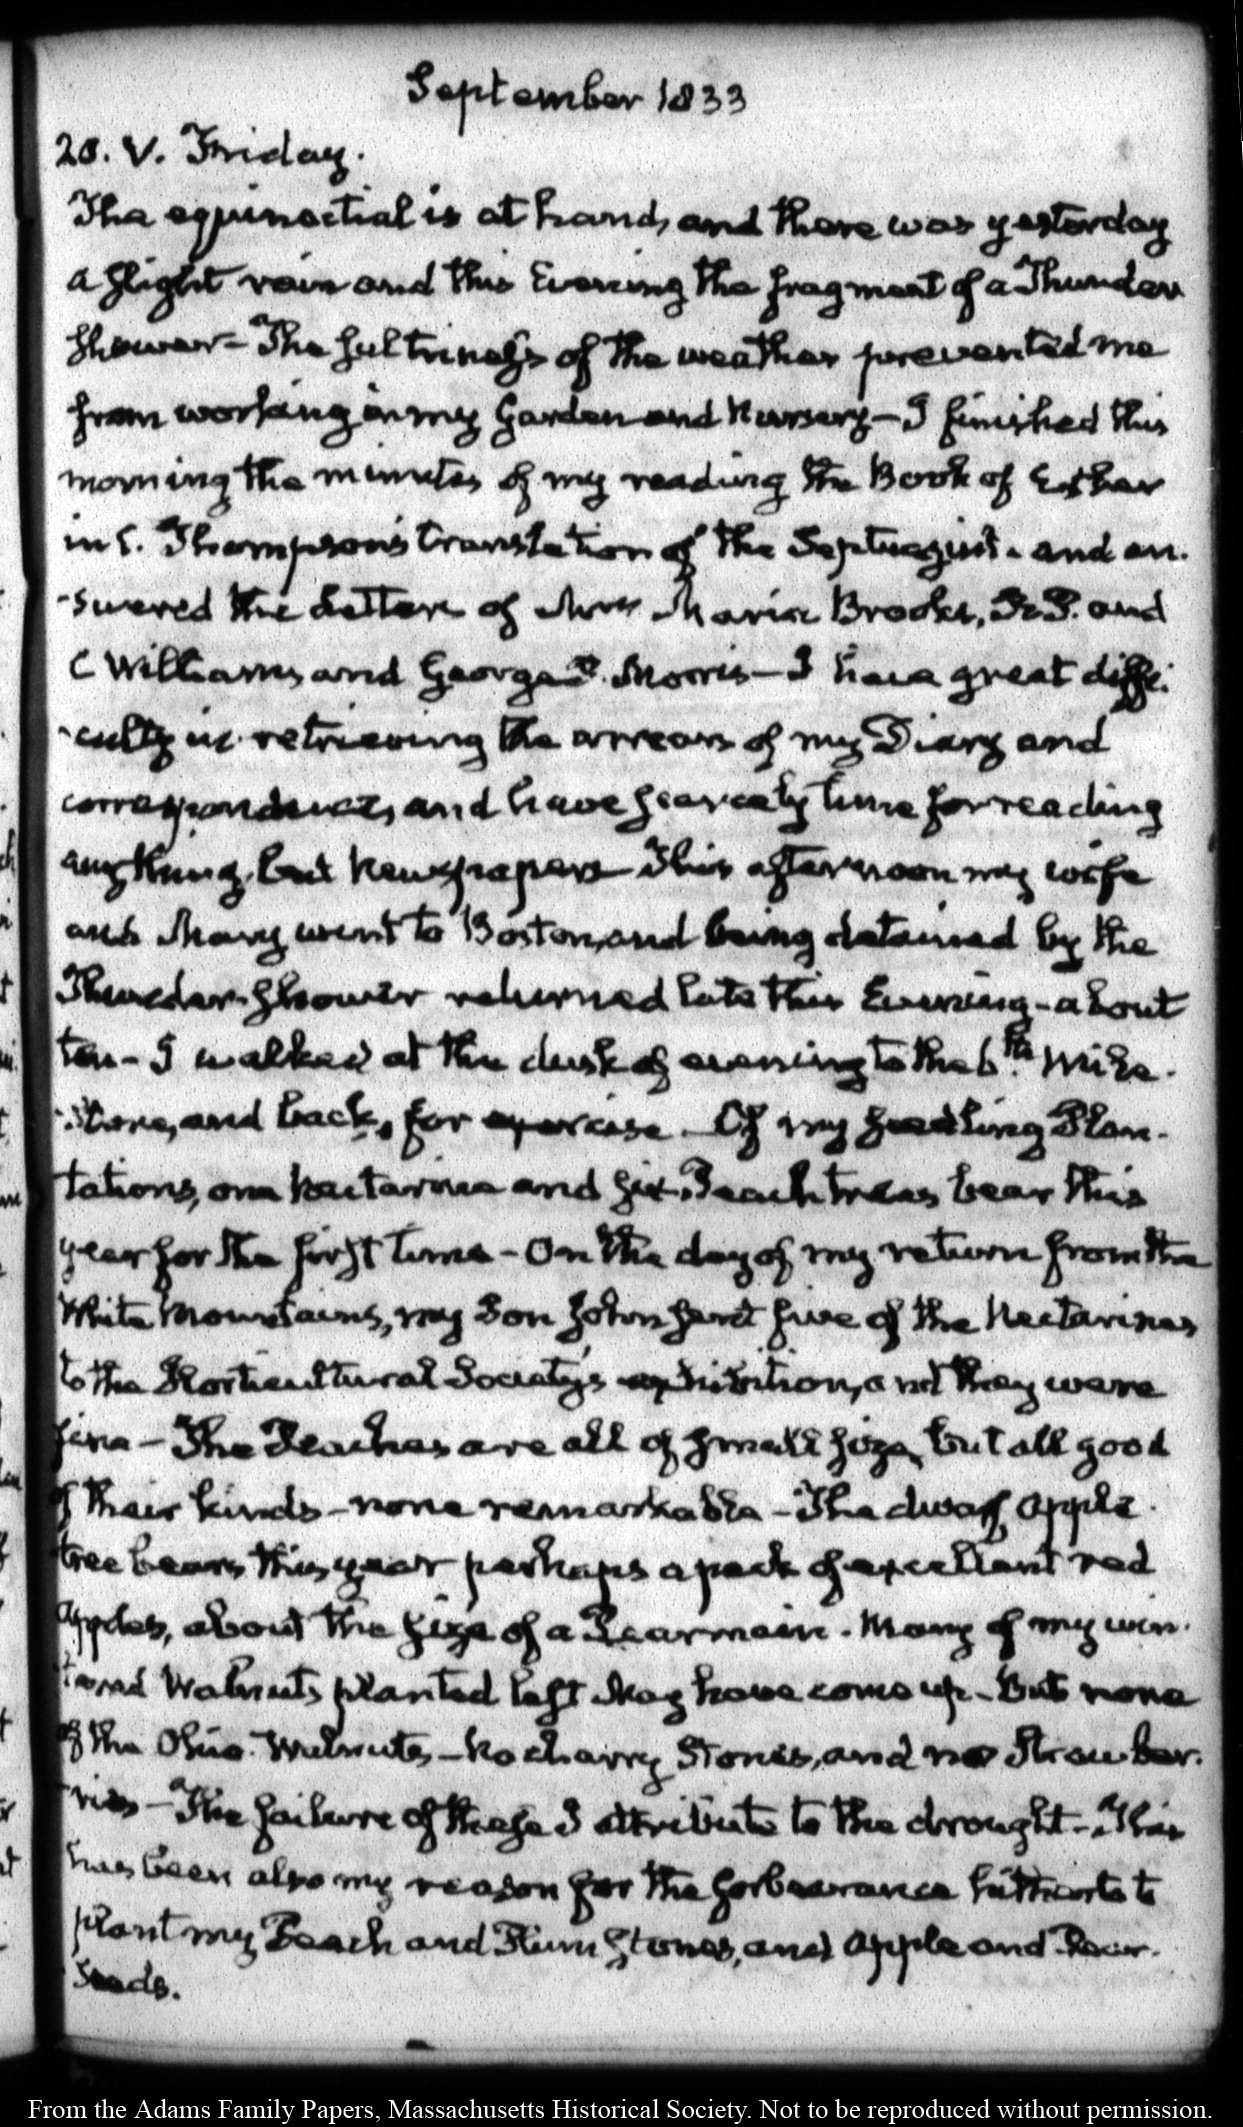 September 1833
20. V. Friday.
The equinoctial is at hand, and there was yesterday
a slight rain and this Evening the fragment of a Thunder
shower – The sultriness of the weather prevented me
from working in my Garden and Nursery – I finished this
morning the minutes of my reading the Book of Esther
in C. Thompson's translation of the Septuagint. and an-
-swered the Letters of Mrs Maria Brooks, and
C Williams and George P. Morris – I have great diffi-
-culty in retrieving the arrears of my Diary and
correspondence, and have scarcely time for reading
any thing, but Newspapers – This afternoon my wife
and Mary went to Boston, and being detained by the
Thunder-shower returned late this Evening – about
ten – I walked at the dusk of evening to the 6.th Mile-
-stone, and back, for exercise – Of my seedling Plan-
tations, one Nectarine and six Peach trees bear this
year for the first time – On the day of my return from the
White Mountains, my Son John sent five of the Nectarines
to the Horticultural Society's exhibition, and they were
fine – The Peaches are all of small size, but all good
of their kinds – none remarkable – The dwarf apple-
tree bears this year perhaps a peck of excellent red
apples, about the size of a Pearmain. Many of my win-
tered Walnuts planted last May have come up – But none
of the Ohio Walnuts – No cherry Stones, and no Strawber-
-ries – The failure of these I attribute to the drought – This
has been also my reason for the forbearance hitherto to
plant my Peach and Plum stones, and Apple and Pear-
seeds.
From the Adams Family Papers, Massachusetts Historical Society. Not to be reproduced without permission.